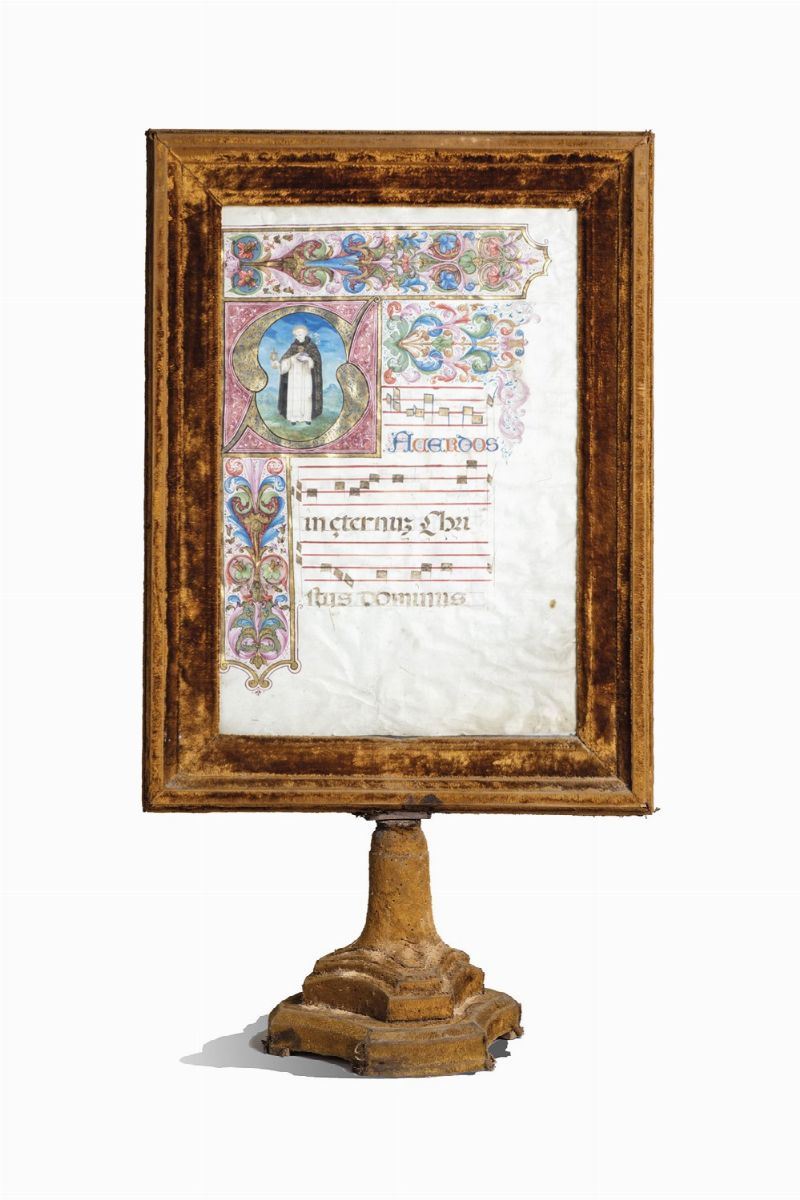 SACERDOS
in eternus Chri
stus dominus